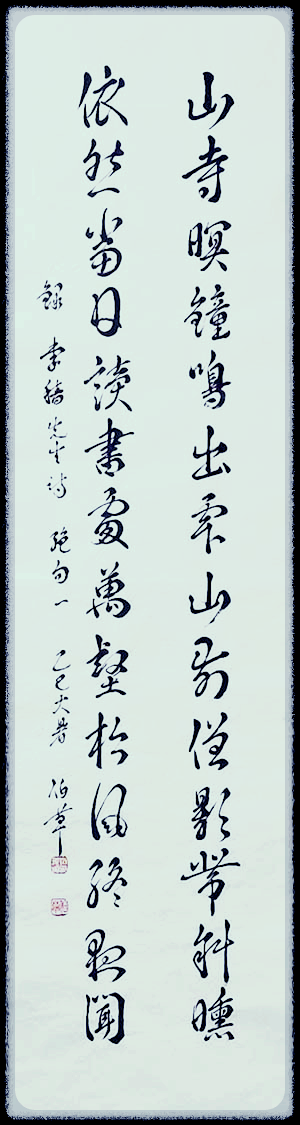 山寺暝鐘鳴出雲山前僧影帶斜曛
依然當日讀書處萬壑松風終夜聞
錄 李 先生詩 絕句一 乙巳大暑 伯